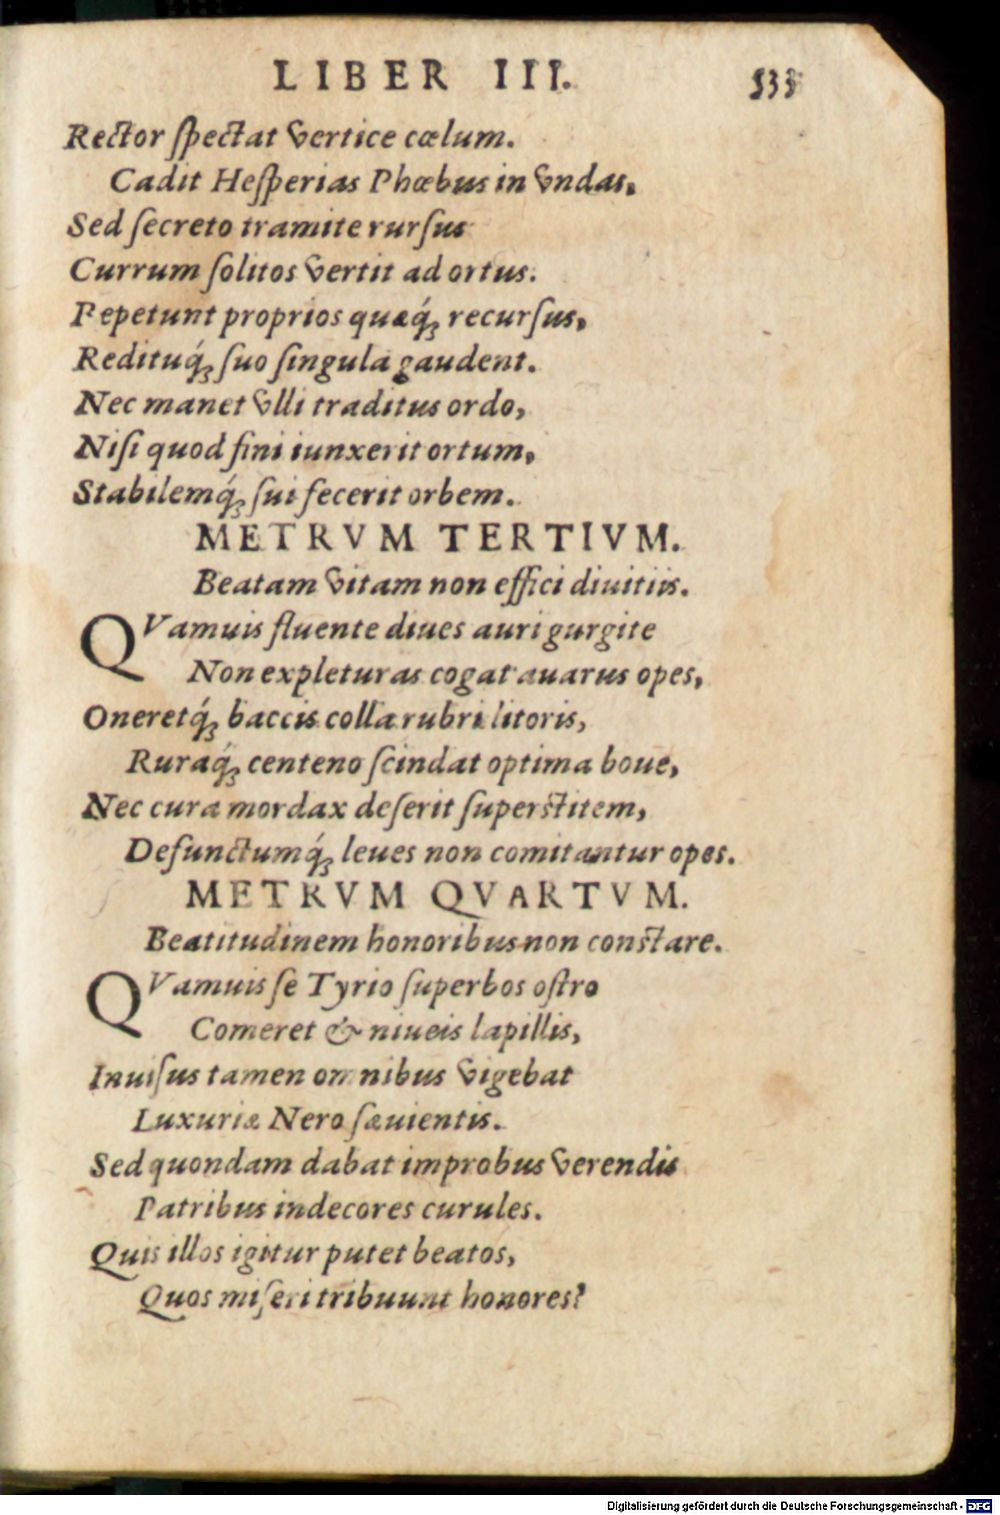 LIBER III. 533
Rector spectat vertice cœlum.
Cadit Hesperias Phœbus in vndas,
Sed secreto tramite rursus
Currum solitos vertit ad ortus.
Repetunt proprios quæq́; recursus,
Redituq́; suo singula gaudent.
Nec manet vlli traditus ordo,
Nisi quod fini iunxerit ortum,
Stabilemq́; sui fecerit orbem.
METRVM TERTIVM.
Beatam vitam non effici diuitiis.
QVamuis fluente diues auri gurgite
Non expleturas cogat auarus opes,
Oneretq́; baccis colla rubri litoris,
Ruraq́; centeno scindat optima boue,
Nec cura mordax deserit superstitem,
Defunctumq́; leues non comitantur opes.
METRVM QVARTVM.
Beatitudinem honoribus non constare.
QVamuis se Tyrio superbos ostro
Comeret & niueis lapillis,
Inuisus tamen omnibus vigebat
Luxuriæ Nero sæuientis.
Sed quondam dabat improbus verendis
Patribus indecores curules.
Quis illos igitur putet beatos,
Quos miseri tribuunt honores?
Digitalisierung gefördert durch die Deutsche Forschungsgemeinschaft - DFG